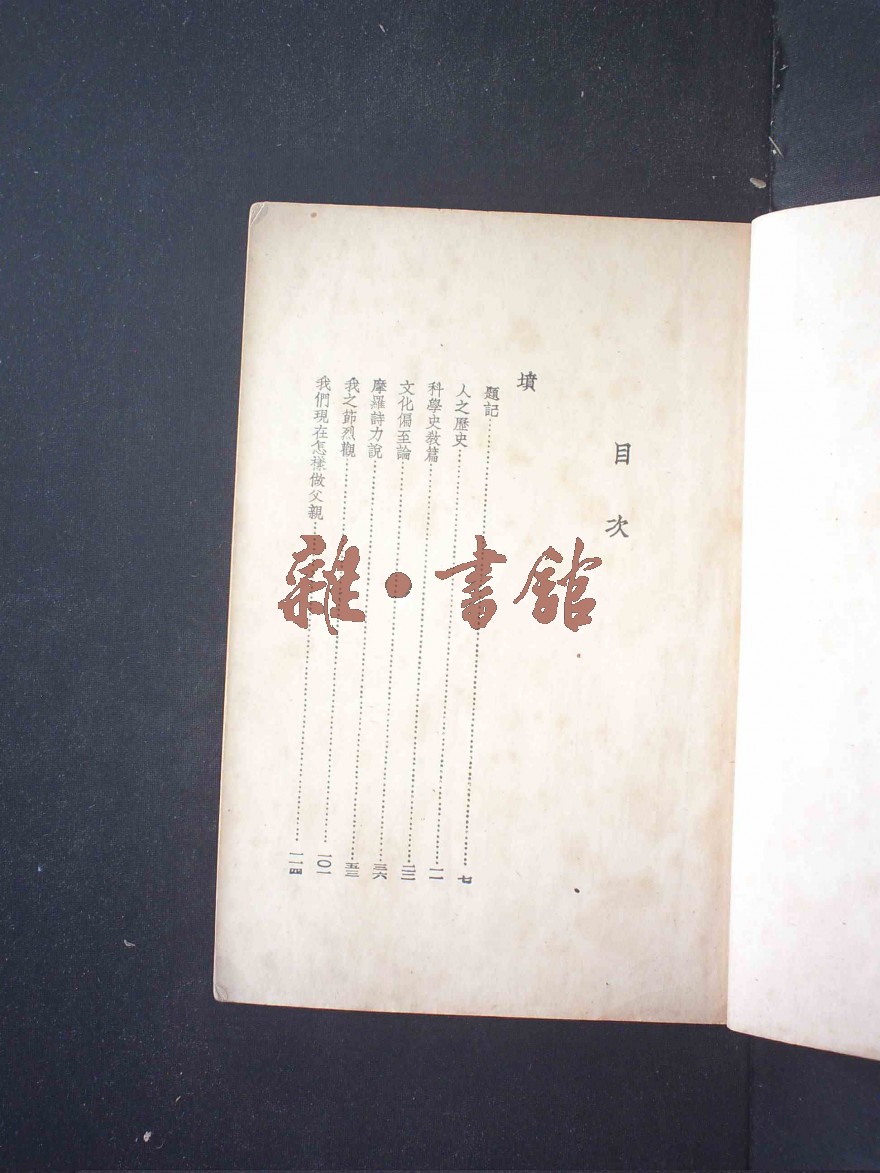 目次
墳
題記……七
人之歷史……一一
科學史教篇……二二
文化偏至論……三六
摩羅詩力說……五三
我之節烈觀……一〇一
我們現在怎樣做父親……一一四
雜·書館